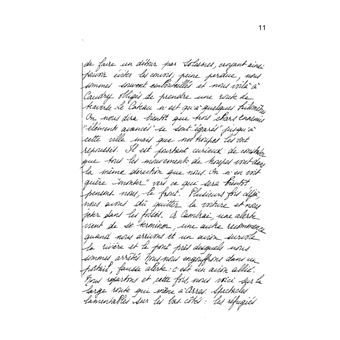 11
de faire un détour par Solesmes, croyant ainsi
pouvoir éviter les convois, peine perdue, nous
sommes souvent embouteillés et nous voilà à
Caudry obligés de prendre une route de
traverse. Le Cateau n'est qu'à quelques kilomètres
On nous dira bientôt que trois chars ennemis
"éléments avancés" se sont "égarés" jusqu'à
cette ville mais que nos troupes les ont
repoussés. Il est pourtant curieux de constater
que tous les mouvements de troupes vont dans
la même direction que nous. On n'en voit
guère "monter" vers ce qui sera bientôt
pensons nous, le front. Plusieurs fois déjà
nous avons dû quitter la voiture et nous
jeter dans les fossés. A Cambrai, une alerte
vient de se terminer, une autre recommence
quand nous arrivons et un avion survole
la rivière et le pont près desquels nous
sommes arrêtés. Nous nous engouffrons dans un
portail, fausse alerte: c'est un avion allié.
Nous repartons et cette fois, nous voici sur la
large route qui mène à Arras. Spectacles
lamentables sur les bas côtés: les réfugiés